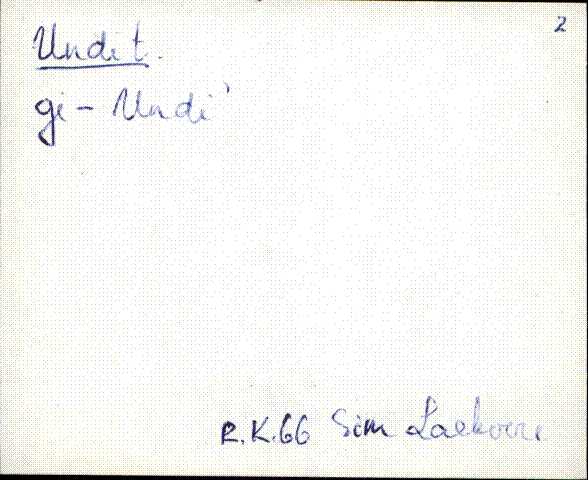 2
Undit.
gi - Undi'
R.K.66 Sim